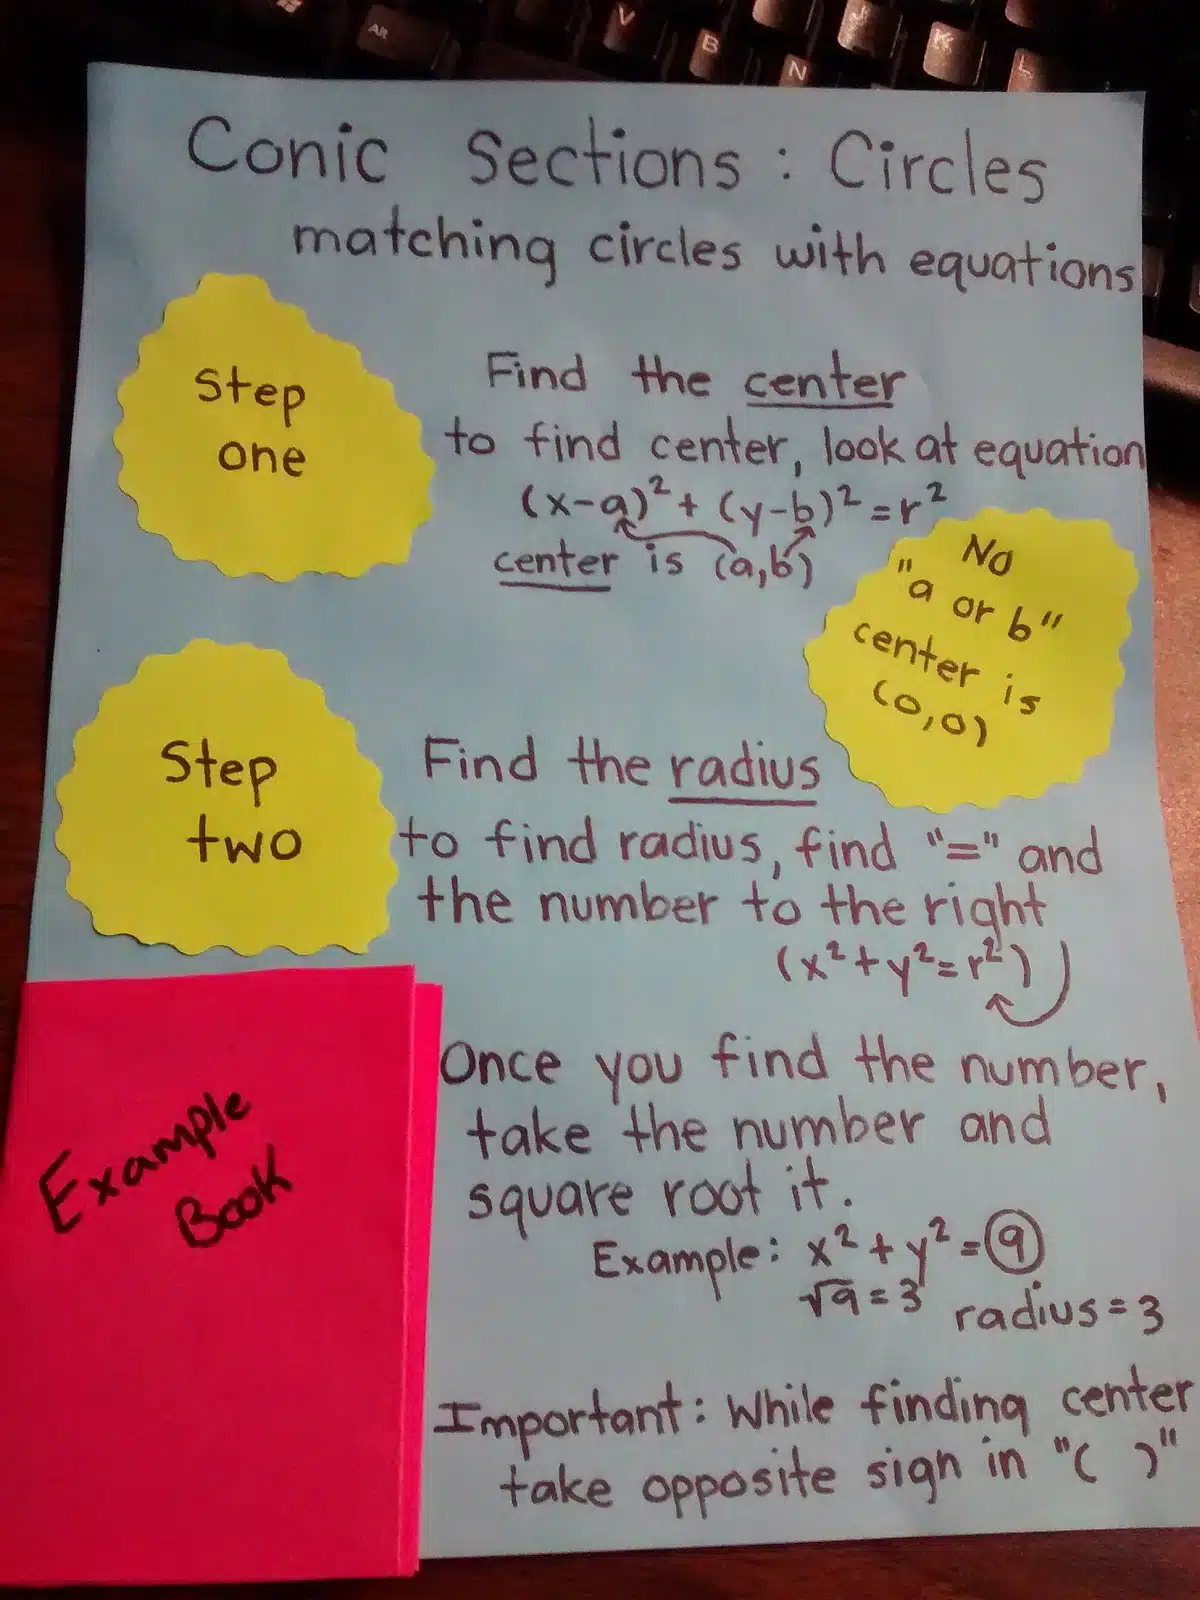 Alt
V
B
N
J
K
L
Conic Sections: Circles
matching circles with equations
Step
one
Find the center
to find center, look at equation
(x-a)²+ (y-b)²=r²
center is (a,b)
No
"a or b"
center is
(0,0)
Step
two
Find the radius
to find radius, find "=" and
the number to the right
(x²+y²=r²)
Once you find the number,
take the number and
square root it.
Example: x²+y²=9
√9=3 radius=3
Important: While finding center
take opposite sign in "( )"
Example
Book